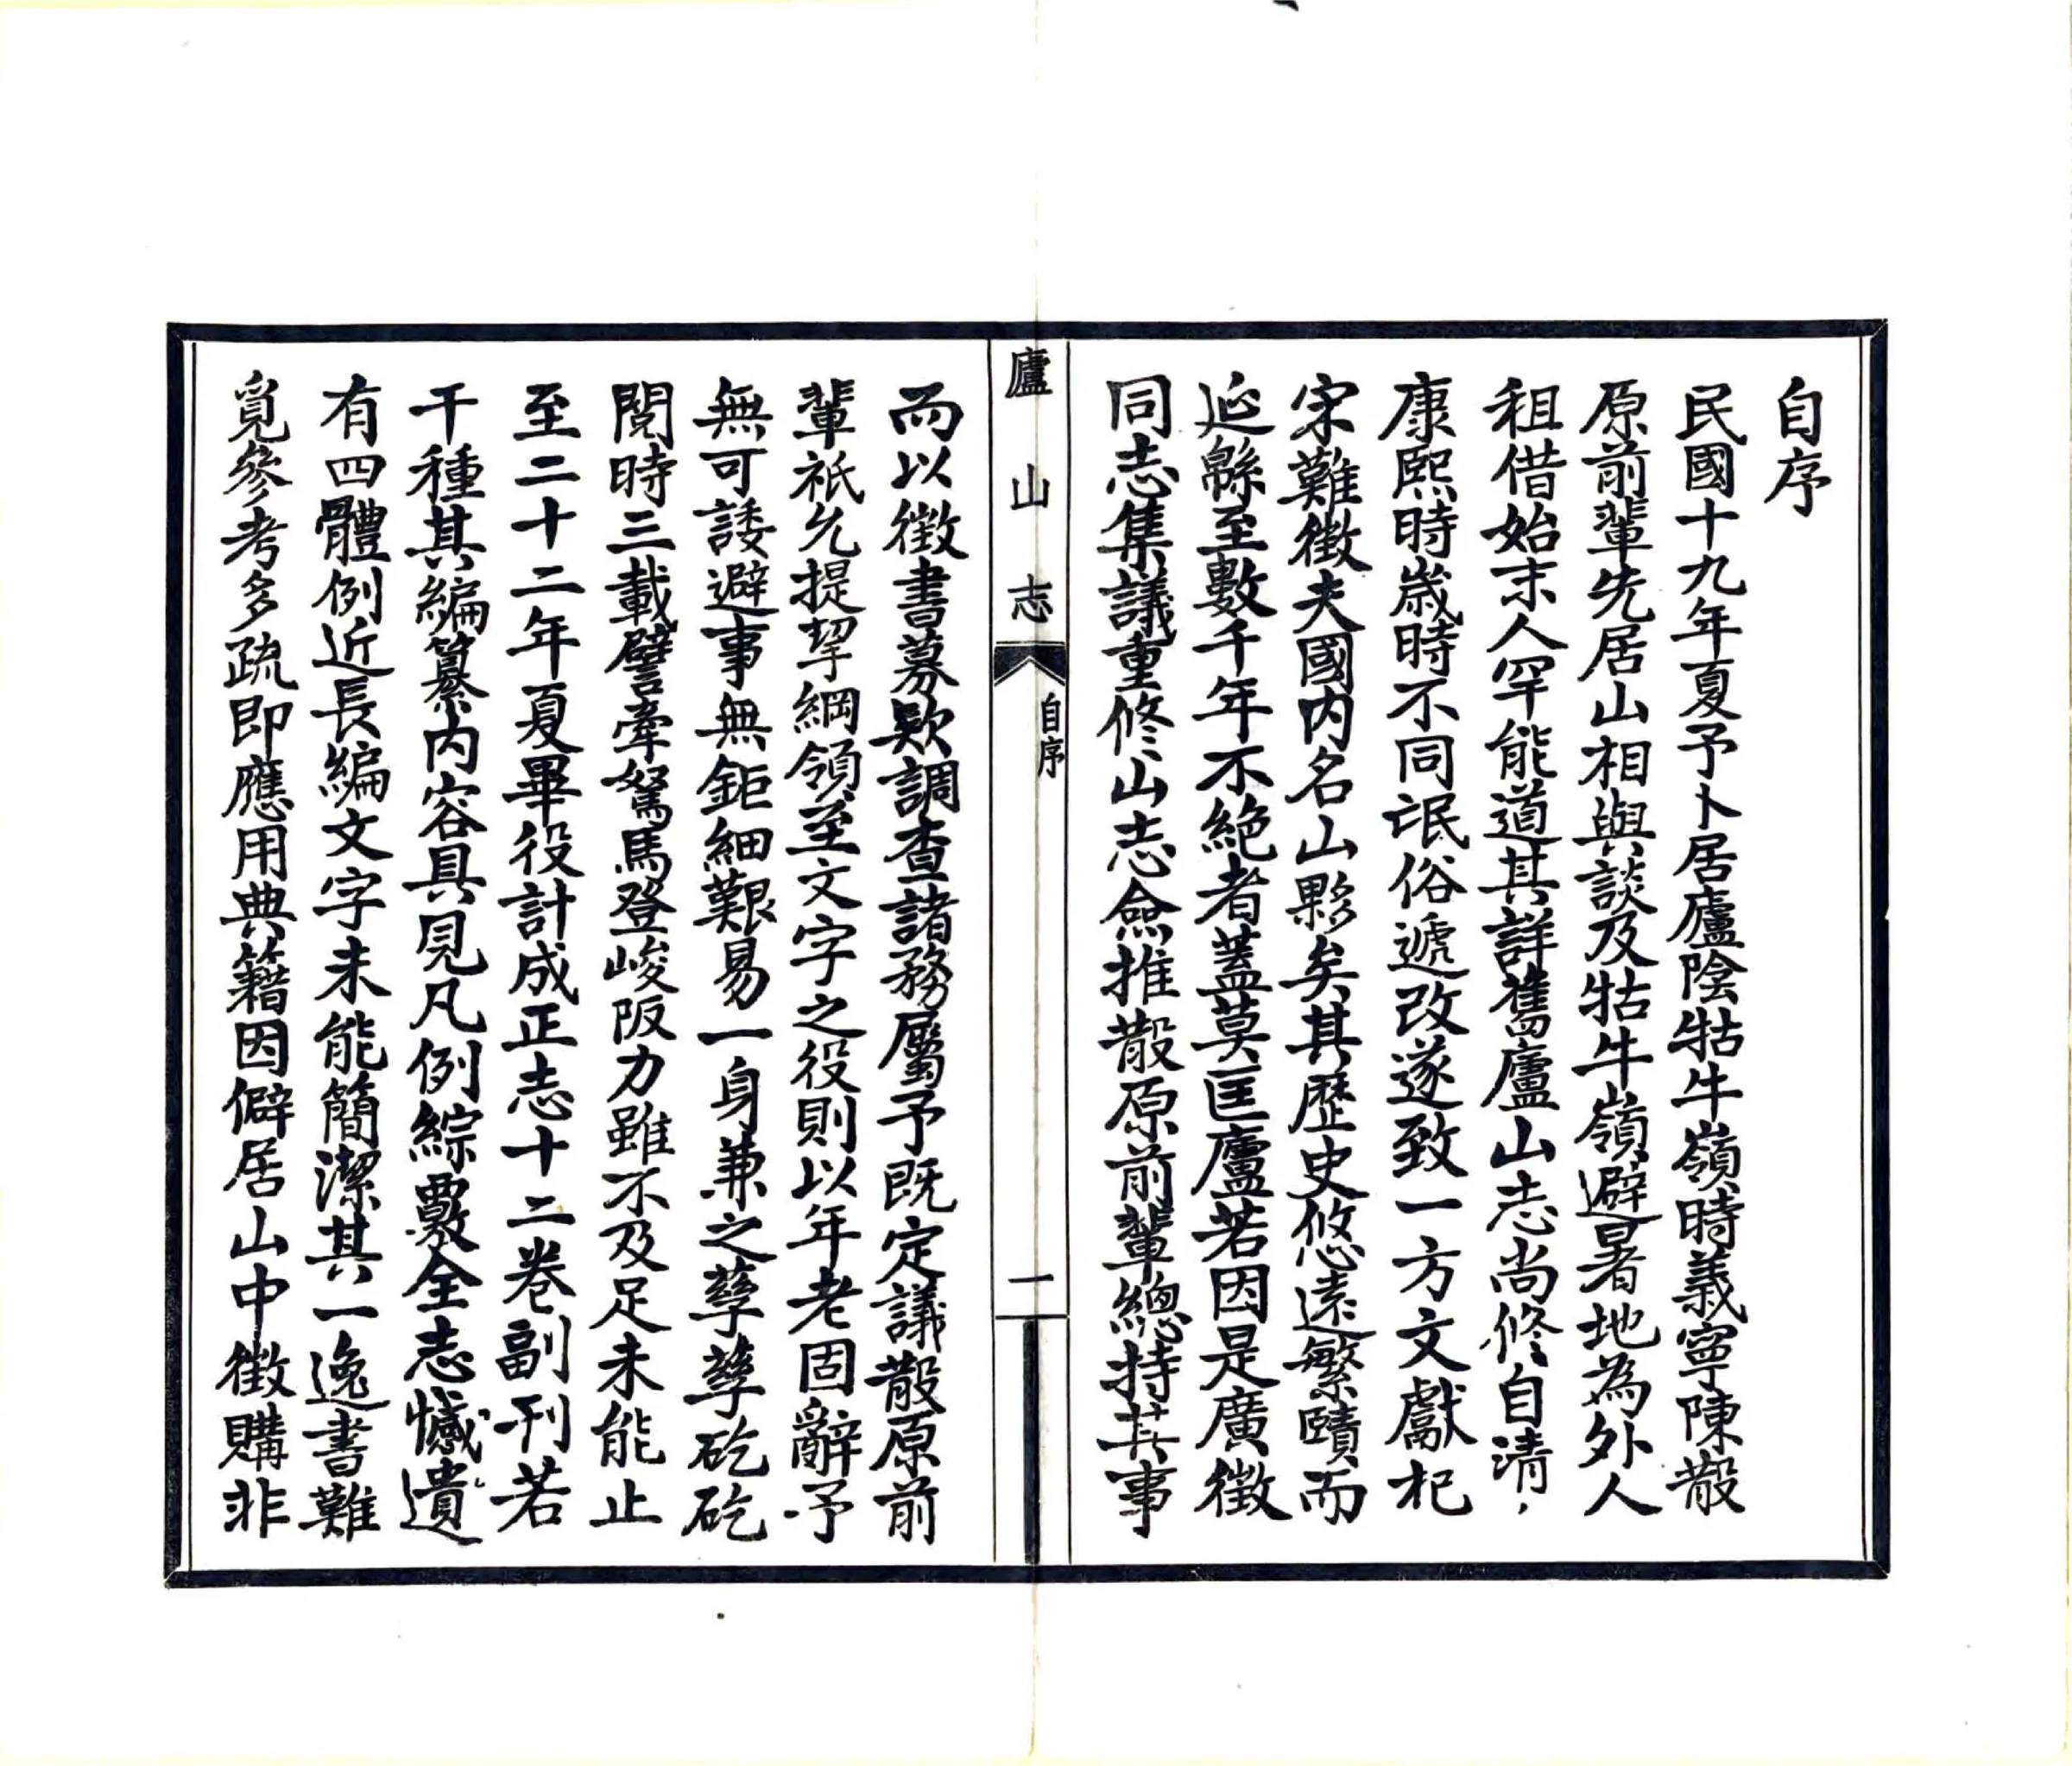 自序
民國十九年夏予卜居廬陰牯牛嶺時義寧陳散
原前輩先居山相與談及牯牛嶺避暑地為外人
租借始末人罕能道其詳舊廬山志尚修自清
康熙時歲時不同氓俗遞改遂致一方文獻杞
宋難徵夫國内名山夥矣其歷史悠遠繁賾而
延緜至數千年不絶者蓋莫匡廬若因是廣徵
同志集議重修山志僉推散原前輩總持其事
廬山志 自序 一
而以徵書募欵調查諸務屬予既定議散原前
輩祇允提挈綱領至文字之役則以年老固辭予
無可諉避事無鉅細艱易一身兼之孳孳矻矻
閱時三載譬牽駑馬登峻阪力雖不及足未能止
至二十二年夏畢役計成正志十二卷副刊若
干種其編纂内容具見凡例綜覈全志憾遺
有四體例近長編文字未能簡潔其一逸書難
覓參考多疏即應用典籍因僻居山中徵購非